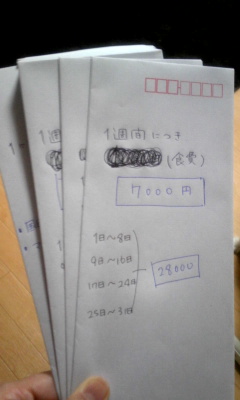 1週間につき
(食費)
7000円
1日~8日
9日~16日
17日~24日
25日~31日
28000
1週